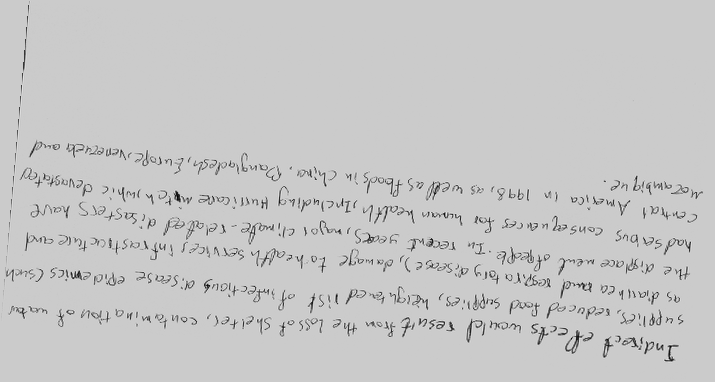 Indirect effects would result from the loss of shelter, contamination of water
supplies, reduced food supplies, heightened risk of infectious disease epidemics (such
as diarrhea and respiratory disease), damage to health services infrastructure and
the displacement of people. In recent years, major climate-related disasters have
had serious consequences for human health, Including Hurricane mitch, whic devastated
central America in 1998, as well as floods in China, Bangladesh, Europe, Venezuela and
Mozambique.